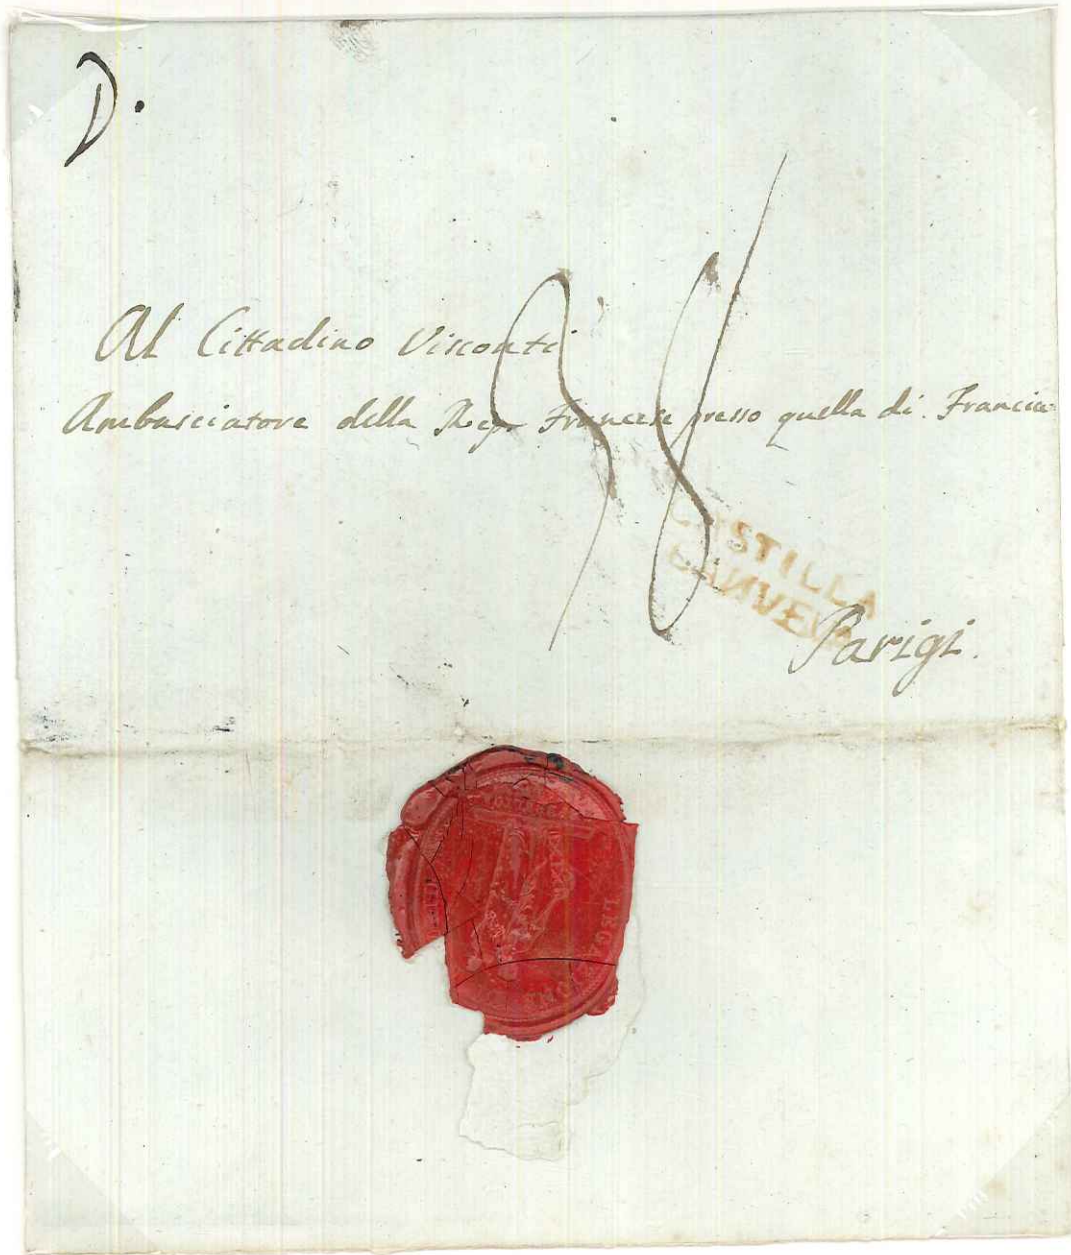 D.
Al Cittadino Visconti
Ambasciatore della Rep. Francese presso quella di Francia
38
CASTILLA
Parigi.
LEGAZIONE